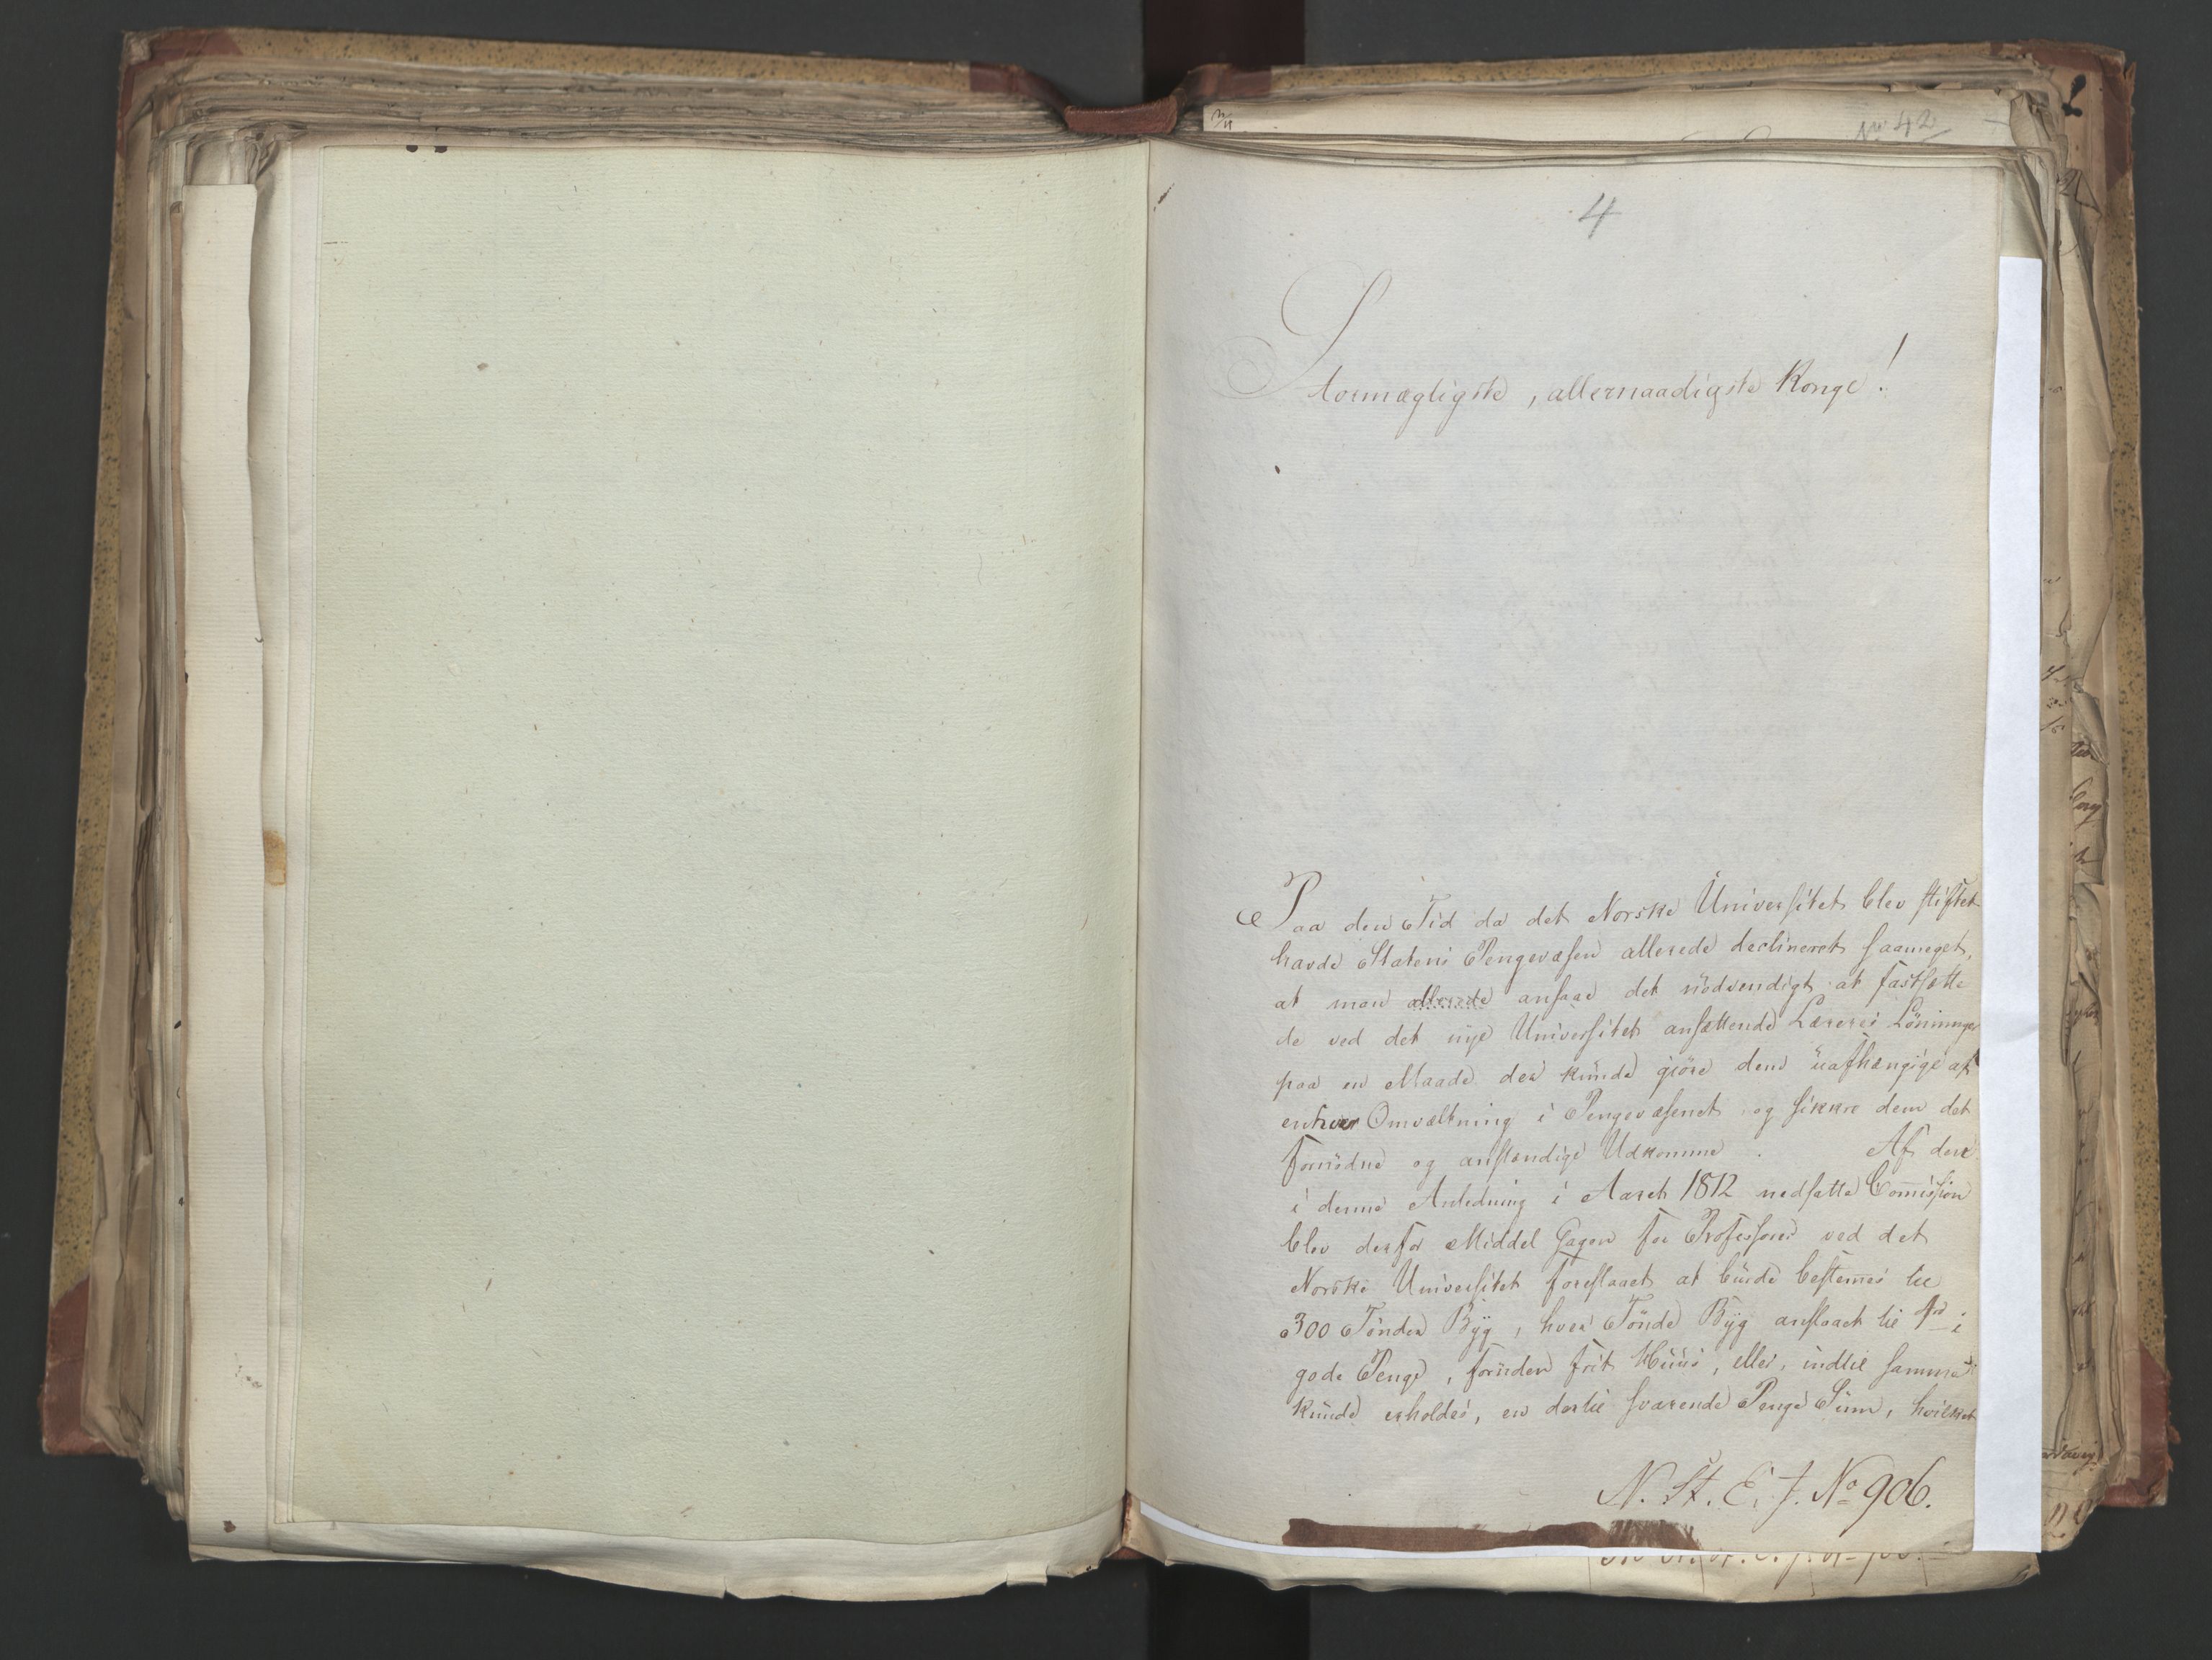 No 42
4
Stormægtigste, allernaadigste Konge!
Paa den Tid da det Norske Universitet blev stiftet
havde Statens Pengevæsen allerede declineret saameget,
at man allerede ansaae det nödvendigt at fastsætte
de ved det nye Universitet ansættende Læreres Lönninger
paa en Maade der kunde gjöre dem uafhængige af
enhver Omvæltning i Pengevæsenet og sikkre dem det
fornödne og anstændige Udkomme. Af den
i denne Anledning i Aaret 1812 nedsatte Commission
blev derfor Middel Gagen for Professorer ved det
Norske Universitet foreslaaet at burde bestemmes til
300 Tönder Byg, hver Tönde Byg anslaaet til i
gode Penge, foruden frit Huus, eller, indtil samme
kunde erholdes, en dertil svarende Penge Sum, hvilket
N. St. E. J. No 906.